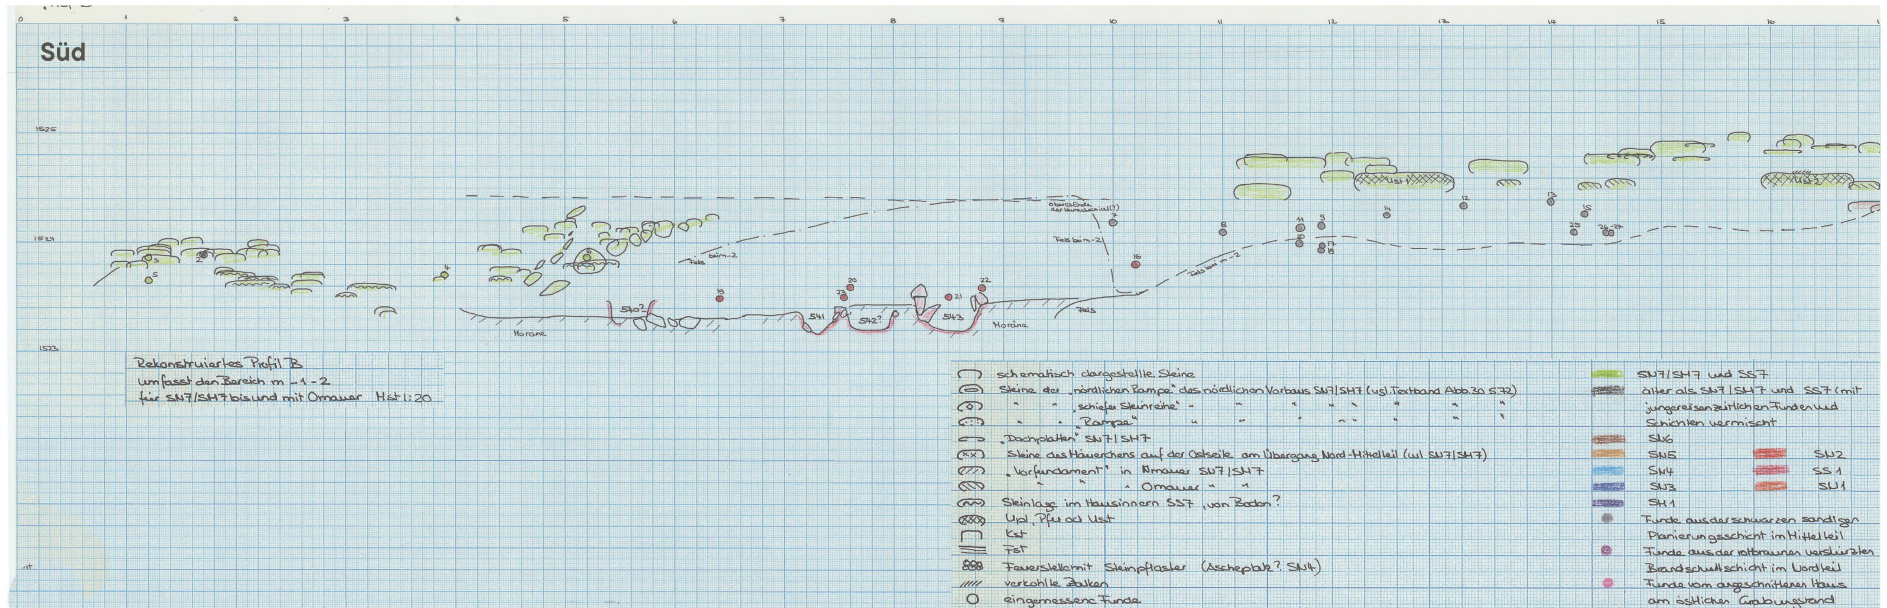 0 1 2 3 4 5 6 7 8 9 10 11 12 13 14 15 16
Süd
1525
1524
1523
oberes Ende
Fels beim-2
Fels beim-2
Fels bei m-2
Fels
Ust1
Ust2
3
2
5
4
6
19
20
23
21
22
7
16
8
11
10
9
17
18
14
12
13
15
25
26-27
540?
541
542?
543
Moräne
Moräne
Rekonstruiertes Profil B
umfasst den Bereich m -1 -2
für SN7/SM7 bis und mit Omauer Mst 1:20
schematisch dargestellte Steine
Steine der "nördlichen Rampe" des nördlichen Vorbaus SN7/SM7 (vgl. Textband Abb.30 S72)
" " "schiefer Steinreihe" " " " " " " "
" " "Rampe" " " " " " " "
"Dachplatten" SN7/SM7
Steine des Mäuerchens auf der Ostseite am Übergang Nord-Mittelteil (wl SN7/SM7)
"Vorfundament" in Amauer SN7/SM7
" " " Omauer " "
Steinlage im Hausinnern SS7, von Boden?
Upl, Pfu od Ust
Kst
Fst
Feuerstelle mit Steinpflaster (Ascheplatz? SN4)
verkohlte Balken
eingemessene Funde
SN7/SM7 und SS7
älter als SN7/SM7 und SS7 (mit
jungereisenzeitlichen Funden und
Schichten vermischt
SN6
SN5
SN4
SN3
SM1
SN2
SS1
SN1
Funde aus der schwarzen sandigen
Planierungsschicht im Mittelteil
Funde aus der rotbraunen verstürzten
Brandschuttschicht im Nordteil
Funde vom angeschnittenen Haus
am östlichen Grabungsrand